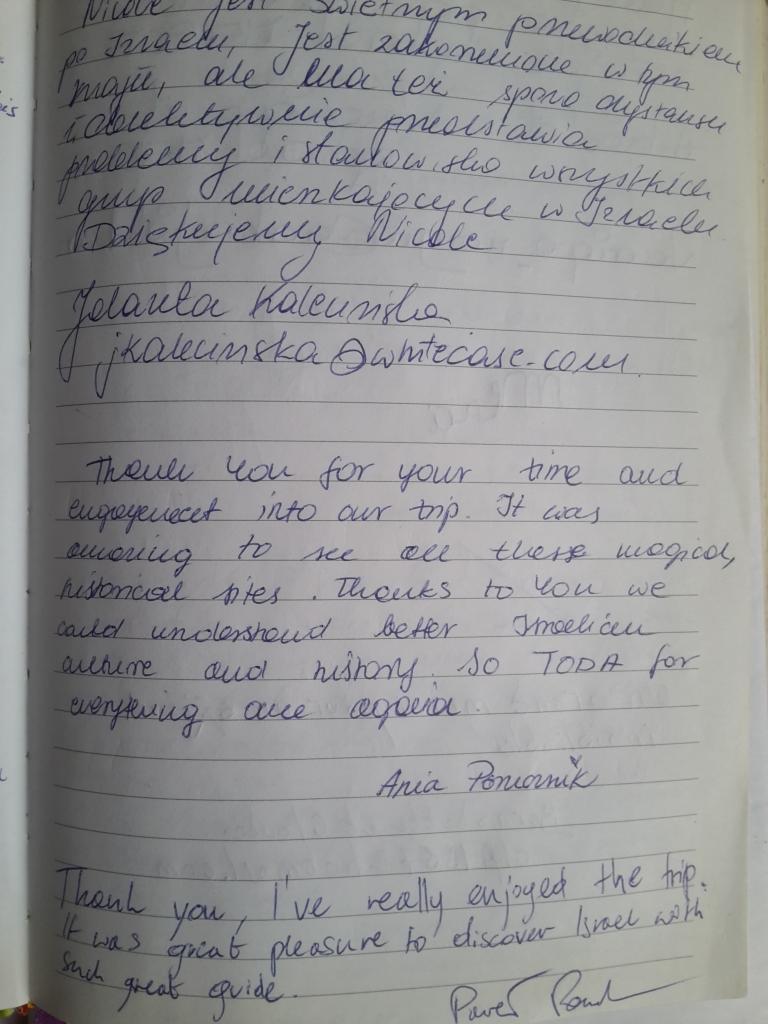 Nicole jest świetnym przewodnikiem
po Izraelu, Jest zakochana w tym
kraju, ale ma też sporo dystansu
i obiektywnie przedstawia
problemy i stanowisko wszystkich
grup mieszkających w Izraelu
Dziękujemy Nicole
Jolanta Kalecińska
jkalecinska@whitecase.com
Thank You for your time and
engagement into our trip. It was
amazing to see all these magical,
historical sites. Thanks to You we
could understand better Israelian
culture and history. So TODA for
everything one again.
Ania
Thank you, I've really enjoyed the trip.
It was great pleasure to discover Israel with
such great guide.
Paweł